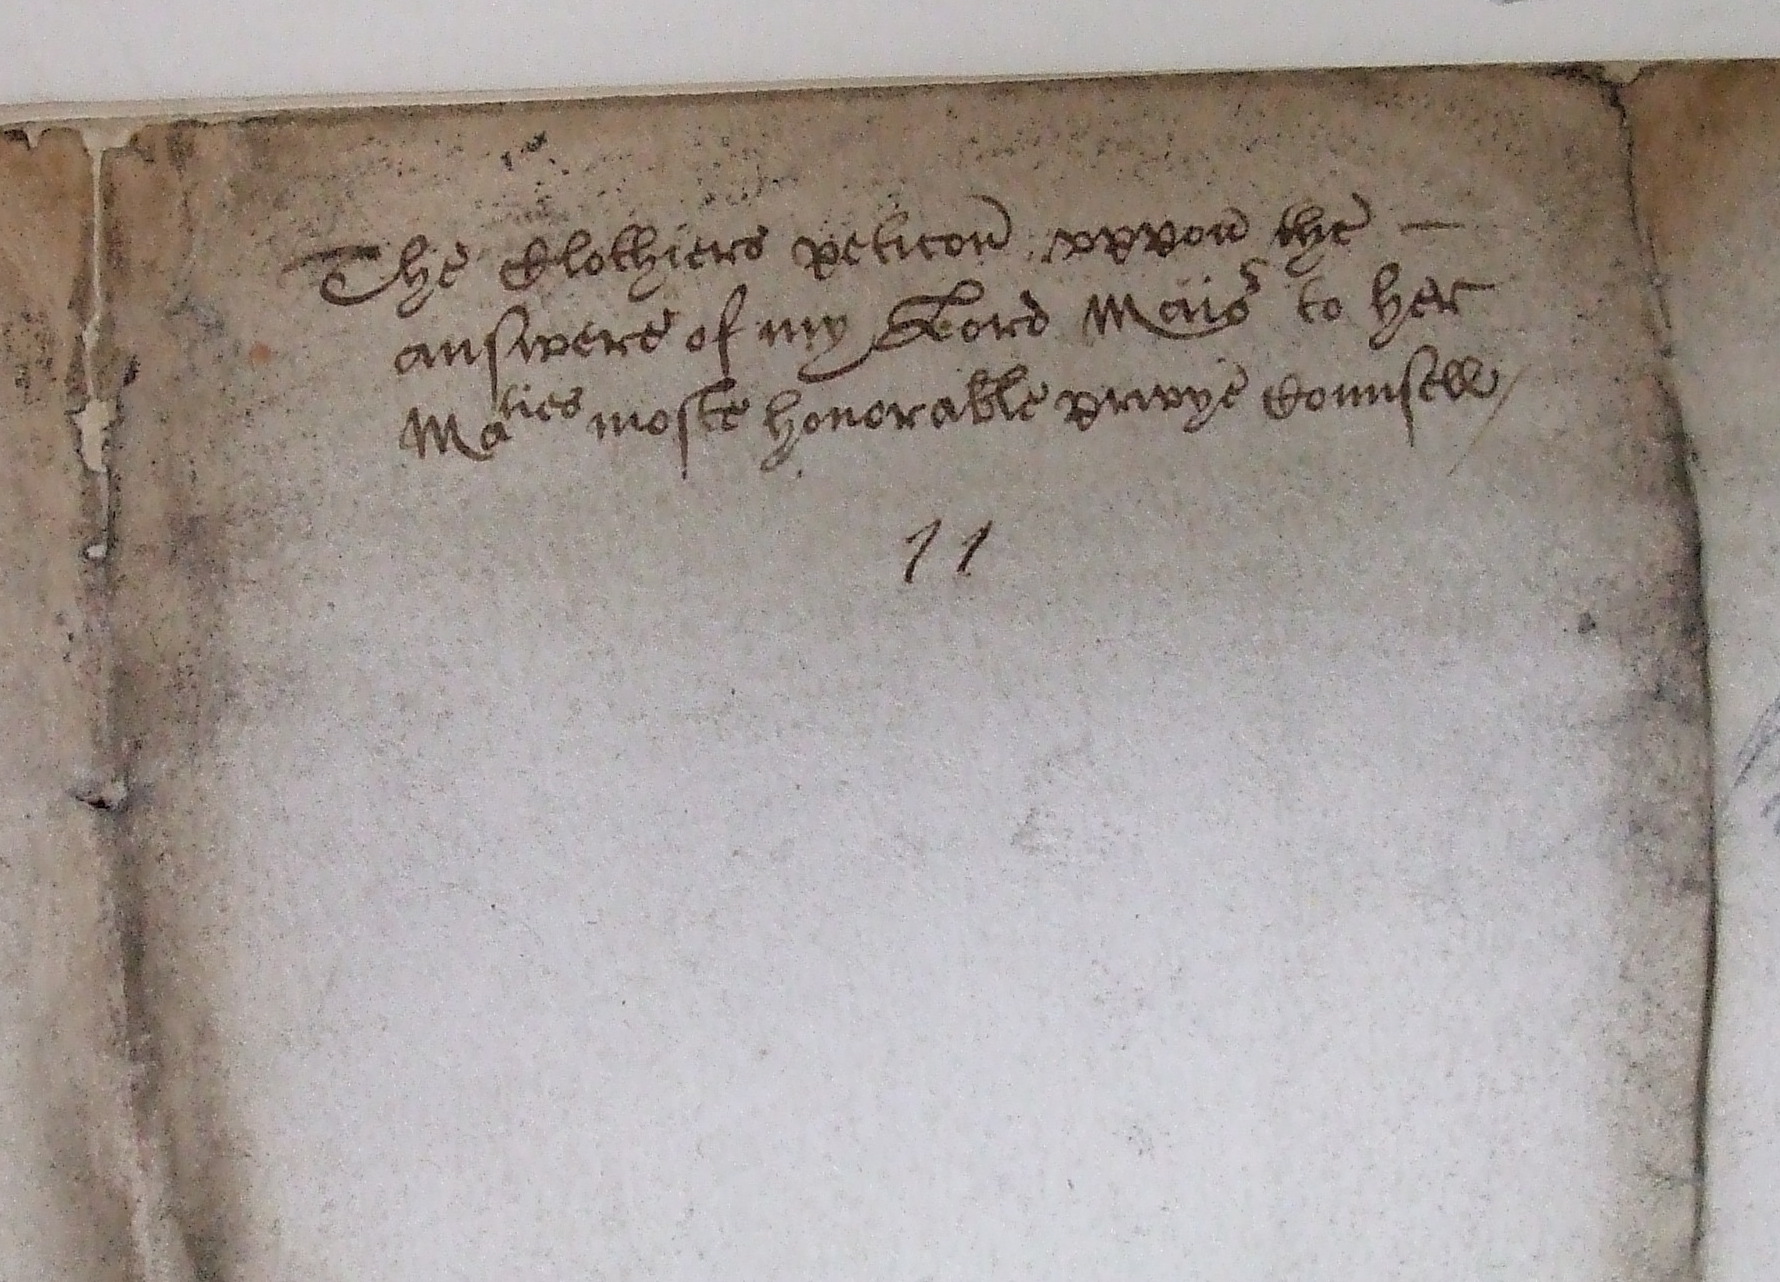 The Clothiers peticon vppon the –
answere of my Lord Maior to her
Maties moste honorable privye Counsell /
11